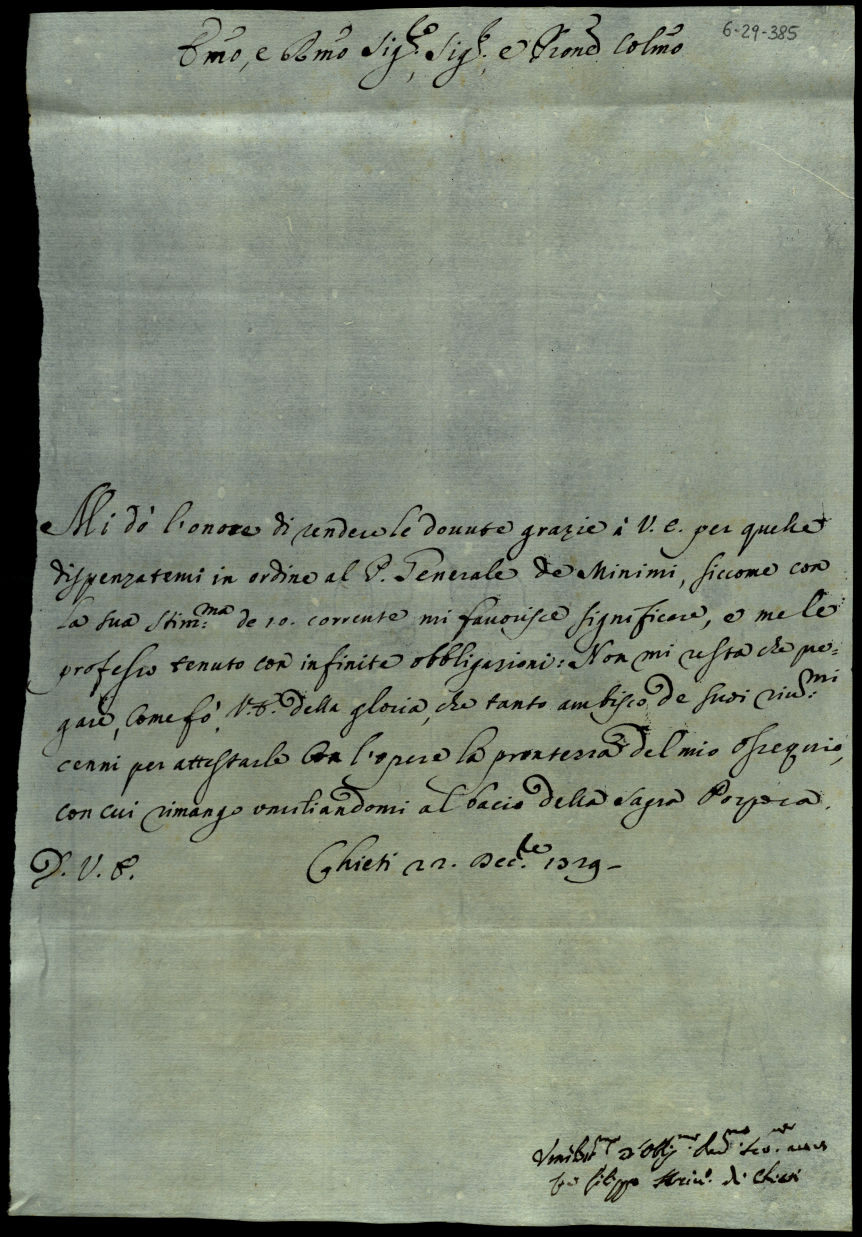 6-29-385
Emo, e Rmo Sig.re Sig.re e Prone Colmo
Mi dò l'onore di rendere le dovute grazie à V. E. per quelle
dispenzatemi in ordine al P. Generale de Minimi, siccome con
la sua stim.ma de 10. corrente mi favorisce significare, e me le
professo tenuto con infinite obbligazioni: Non mi resta che pre=
gare, come fò, V. E. della gloria, che tanto ambisco de suoi riv.mi
cenni per attestarle con l'opere la prontezza del mio ossequio,
con cui rimango umiliandomi al bacio della Sagra Porpora.
D. V. E. Chieti 22. Dec.bre 1729
Umil.mo D.mo Obbl.mo
fra Filippo di Chieti